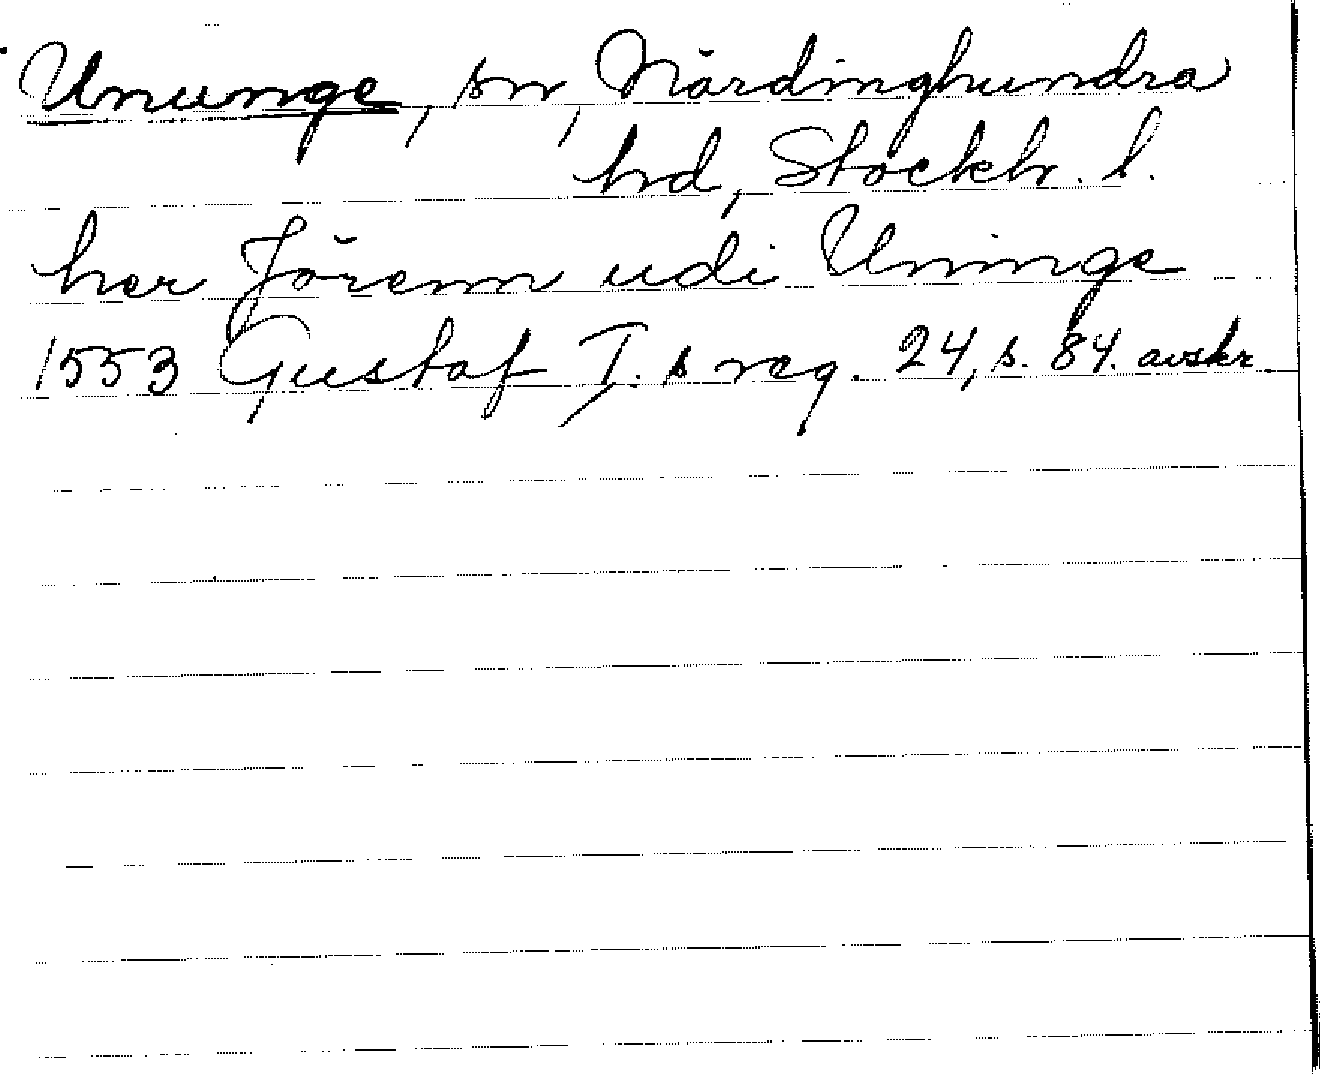 Ununge, sn, Närdinghundra
hd, Stockh. l.
her Jörenn udi Uninge
1553 Gustaf I. s reg. 24, s. 84. avskr.